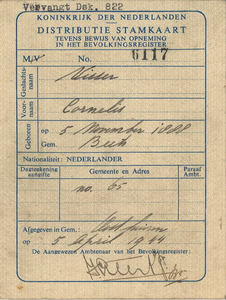 Vervangt Dsk. 822
KONINKRIJK DER NEDERLANDEN
DISTRIBUTIE STAMKAART
TEVENS BEWIJS VAN OPNEMING
IN HET BEVOLKINGSREGISTER
M/V No. 6117
Geslachtsnaam Visser
Voornaam Cornelis
Geboren op 5 November 1888
Gem.
Nationaliteit: NEDERLANDER
Dagteekening aangifte Gemeente en Adres Paraaf Ambt.
no. 65
Afgegeven in Gem.:
op 5 April 1944
De Aangewezen Ambtenaar van het Bevolkingsregister: